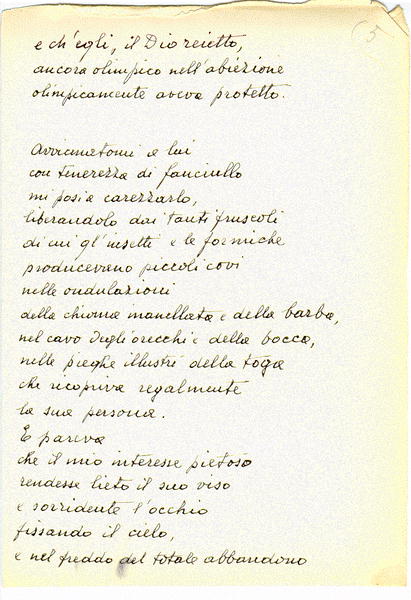 5
e ch'egli, il Dio reietto,
ancora olimpico nell'abiezione
olimpicamente aveva protetto.
Avvicinatomi a lui
con tenerezza di fanciullo
mi posi a carezzarlo,
liberandolo dai tanti fruscoli
di cui gl'insetti e le formiche
producevano piccoli covi
nelle ondulazioni
della chioma manellata e della barba,
nel cavo degli orecchi e della bocca,
nelle pieghe illustri della toga
che ricopriva regalmente
la sua persona.
E pareva
che il mio interesse pietoso
rendesse lieto il suo viso
e sorridente l'occhio
fissando il cielo,
e nel freddo del totale abbandono